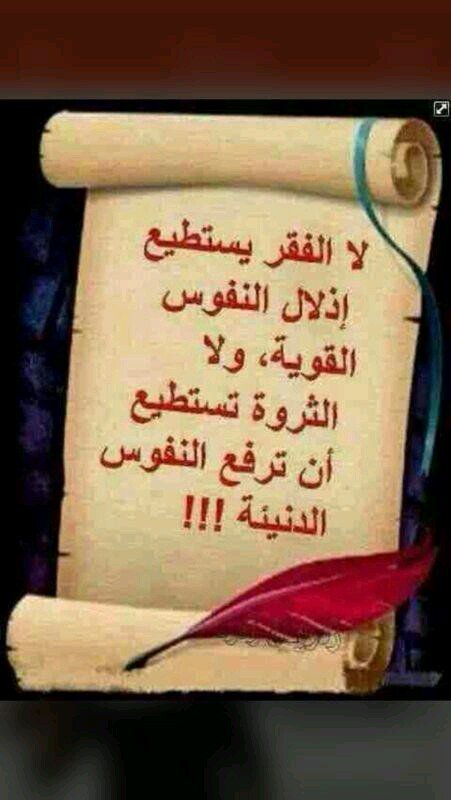 لا الفقر يستطيع
إذلال النفوس
القوية، ولا
الثروة تستطيع
أن ترفع النفوس
الدنيئة !!!